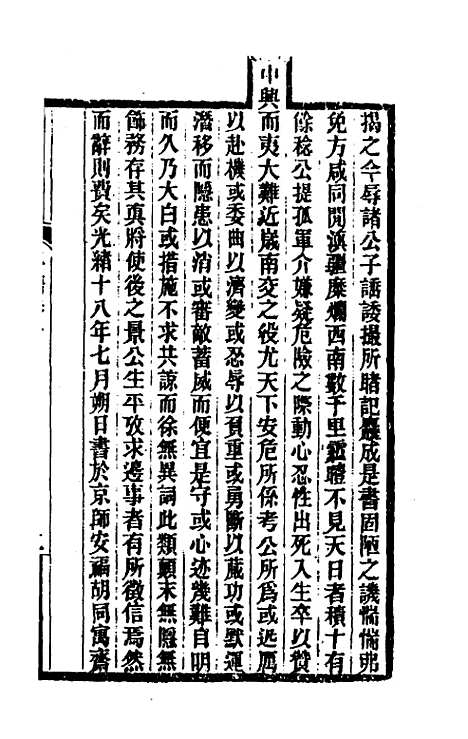 揭之今辱諸公子諈諉撮所睹記纂成是書固陋之譏惴惴弗
免方咸同間滇疆糜爛西南數千里曀不見天日者積十有
餘稔公提孤軍介嫌疑危險之際動心忍性出死入生卒以贊
中興而夷大難近歲南交之役尤天下安危所係考公所爲或迅厲
以赴機或委曲以濟變或忍辱以負重或勇斷以蕆功或默運
潛移而隱患以消或審敵蓄威而便宜是守或心迹幾難自明
而久乃大白或措施不求共諒而徐無異詞此類顛末無隱無
飾務存其眞將使後之景公生平攷求邊事者有所徵信焉然
而辭則費矣光緒十八年七月朔日書於京師安福胡同寓齋